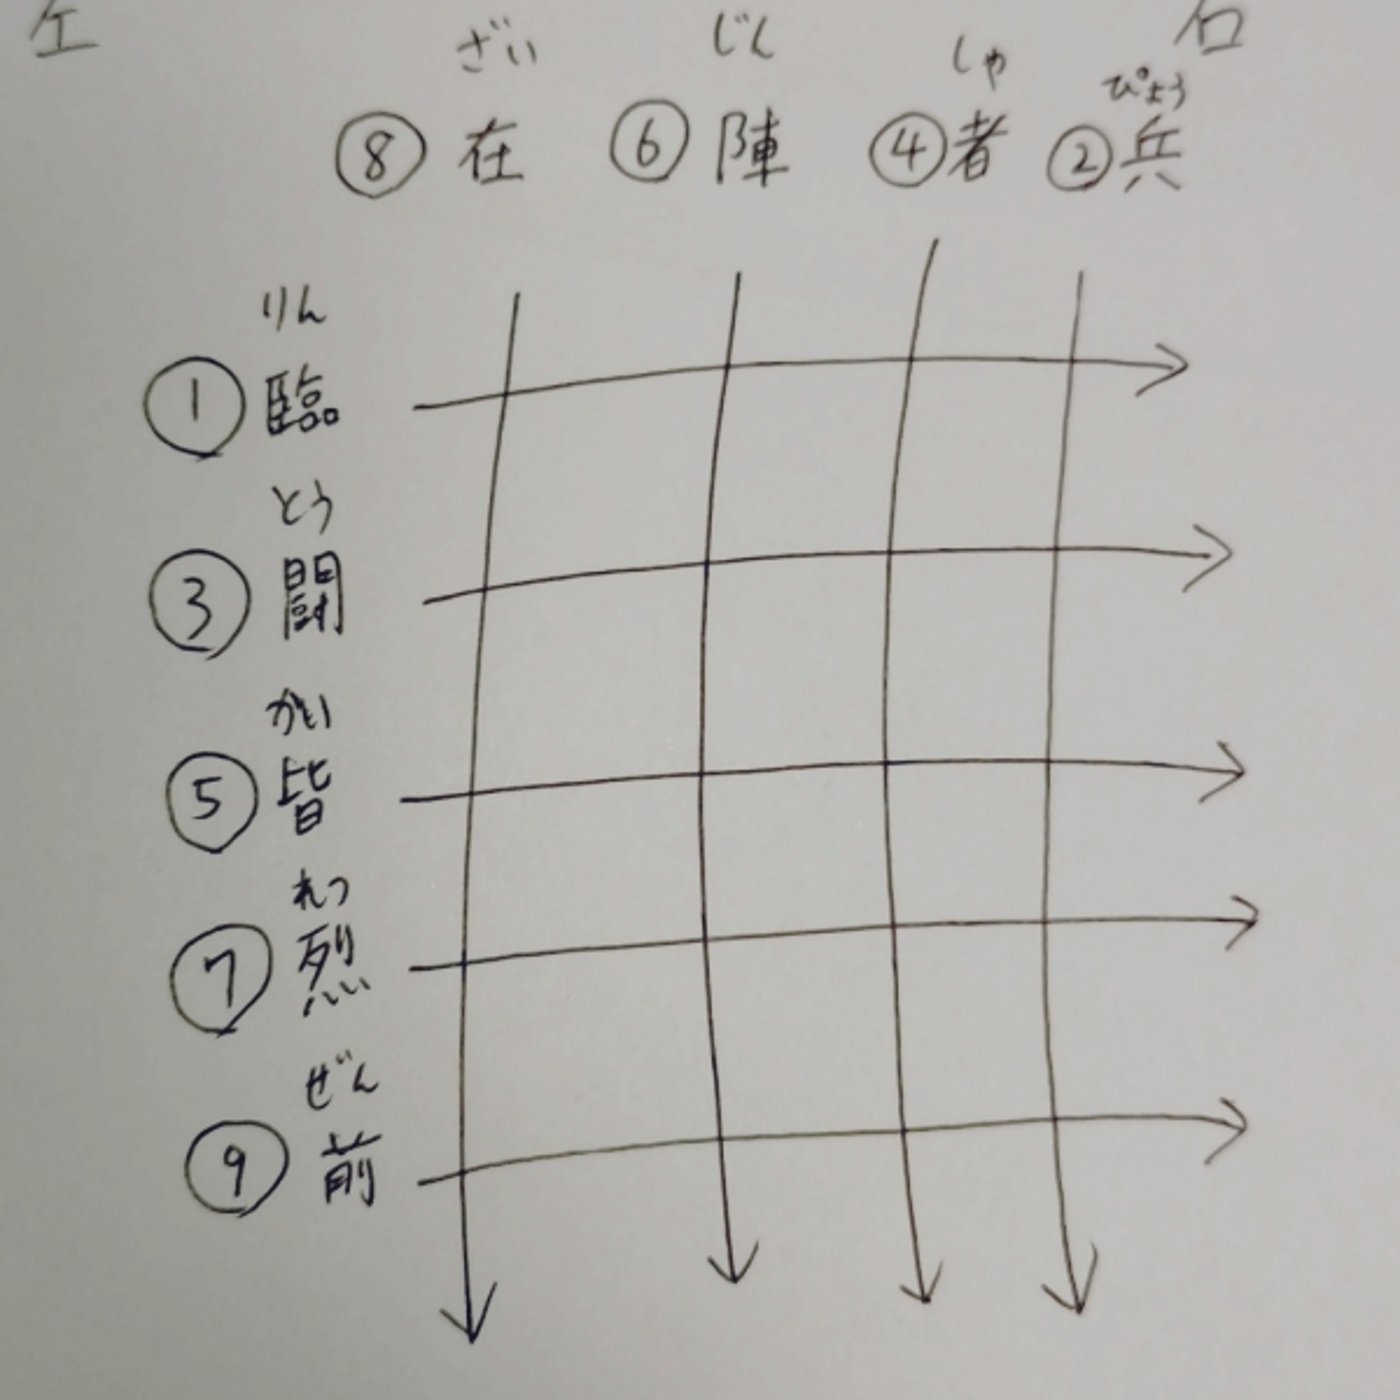 左 右
ざい じん しゃ ぴょう
⑧在 ⑥陣 ④者 ②兵
りん
①臨
とう
③闘
かい
⑤皆
れつ
⑦烈
ぜん
⑨前